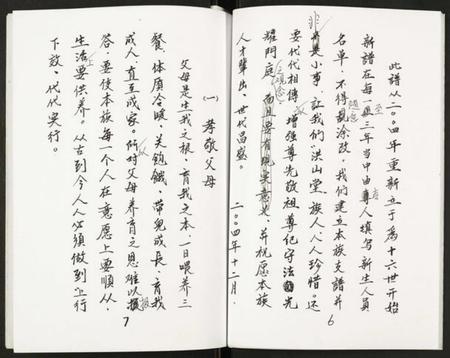 此譜从二00四年重新立于為十六世开始
新譜在每一至三年当中由專人填写新生人員
名单，不得随意乱涂改，我們建立本族支譜并
非异小事，让我們洪山堂族人人人珍惜。还
要代代相傳，增强尊先敬祖尊纪守法，光
耀門庭，而且要有
并祝愿本族
人才辈出、世代昌盛。
二00四年十二月．
6
(一) 孝敬父母
父母是生我之根，育我之本，一日喂养三
餐，体质冷暖，关饥饿，带兒成長，育我
成人，直互成家。所对父母养育之恩难以报
答，要使本族每一个人在意愿上要順从，
生活上要供养。从古到今人人必須做到上行
下效，代代实行。
7